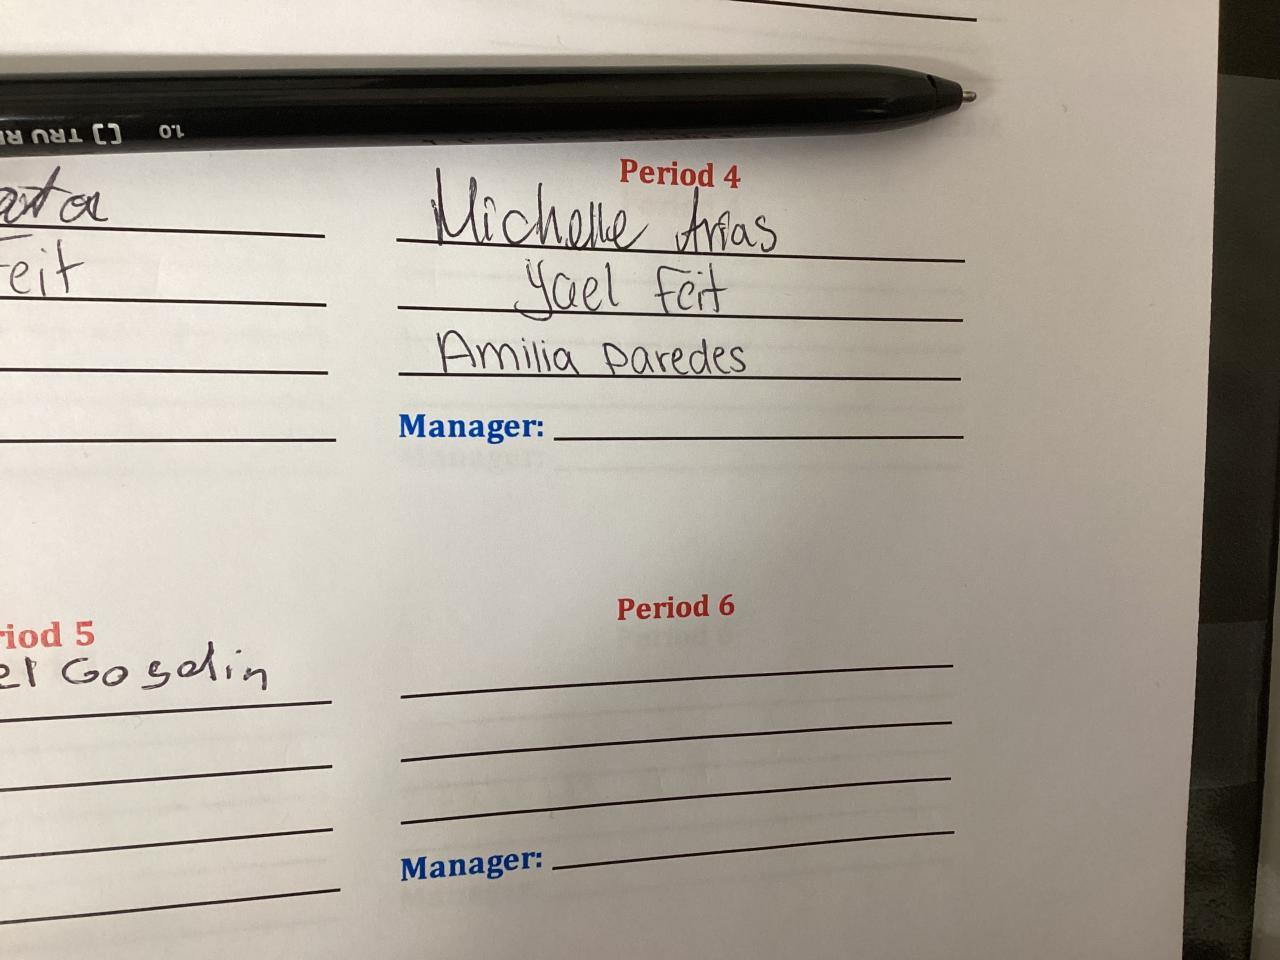 TRU RE [] 1.0
Period 4
Michelle Arias
Feit
Yael Feit
Amilia paredes
Manager:
Period 6
riod 5
el Gosalin
Manager: